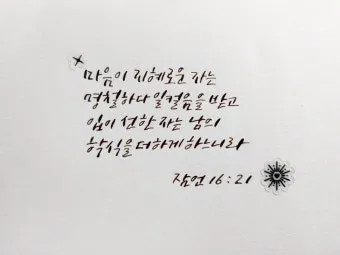 마음이 지혜로운 자는
명철하다 일컬음을 받고
입이 선한 자는 남의
학식을 더하게 하느니라
잠언 16:21